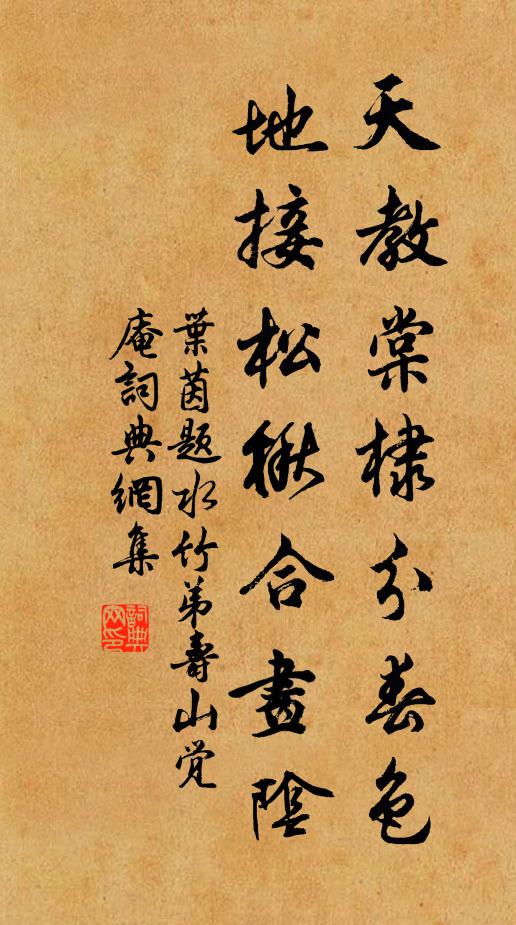 天教棠棣分春色
地接松楸合晝陰
葉茵題水竹弟壽山覚
庵詞典網集
詞典網印